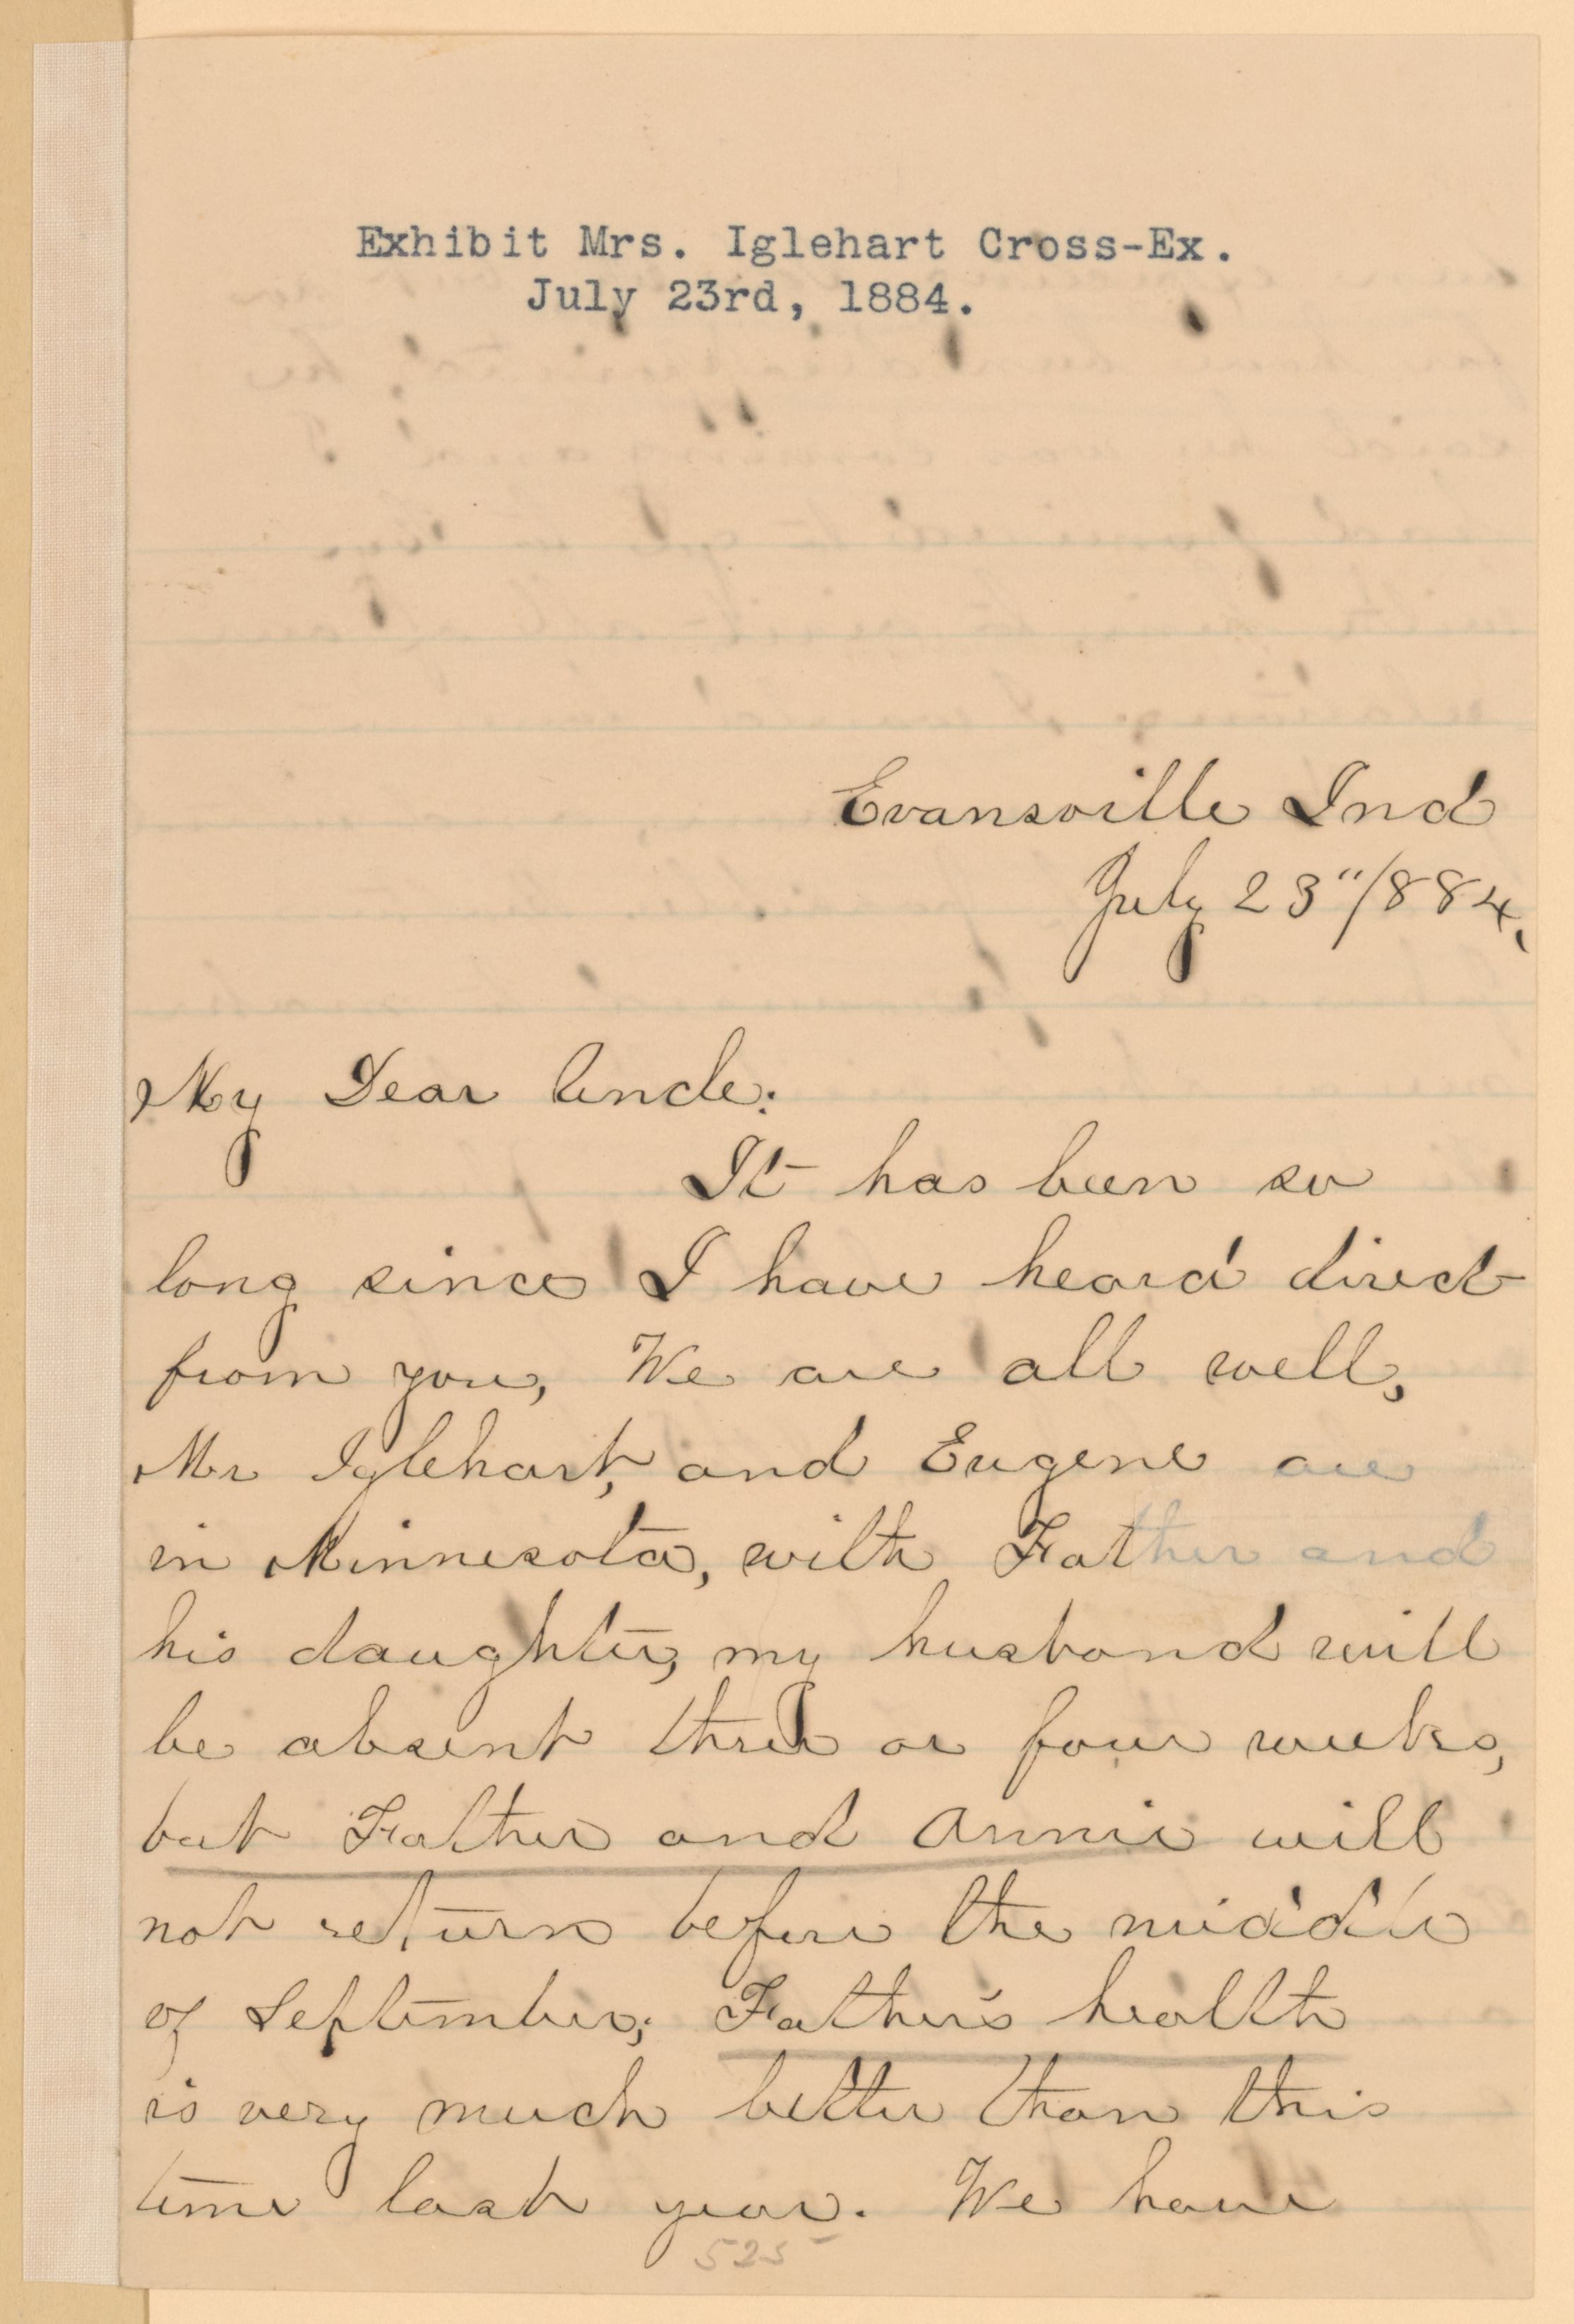 Exhibit Mrs. Iglehart Cross-Ex.
July 23rd, 1884.
Evansville Ind
July 23"/884,
My Dear Uncle:
It has been so
long since I have heard direct
from you, We are all well,
Mr Iglehart, and Eugene are
in Minnesota, with Father and
his daughter, my husband will
be absent three or four weeks,
but Father and Annie will
not return before the middle
of September; Father's health
is very much better than this
time last year. We have
525